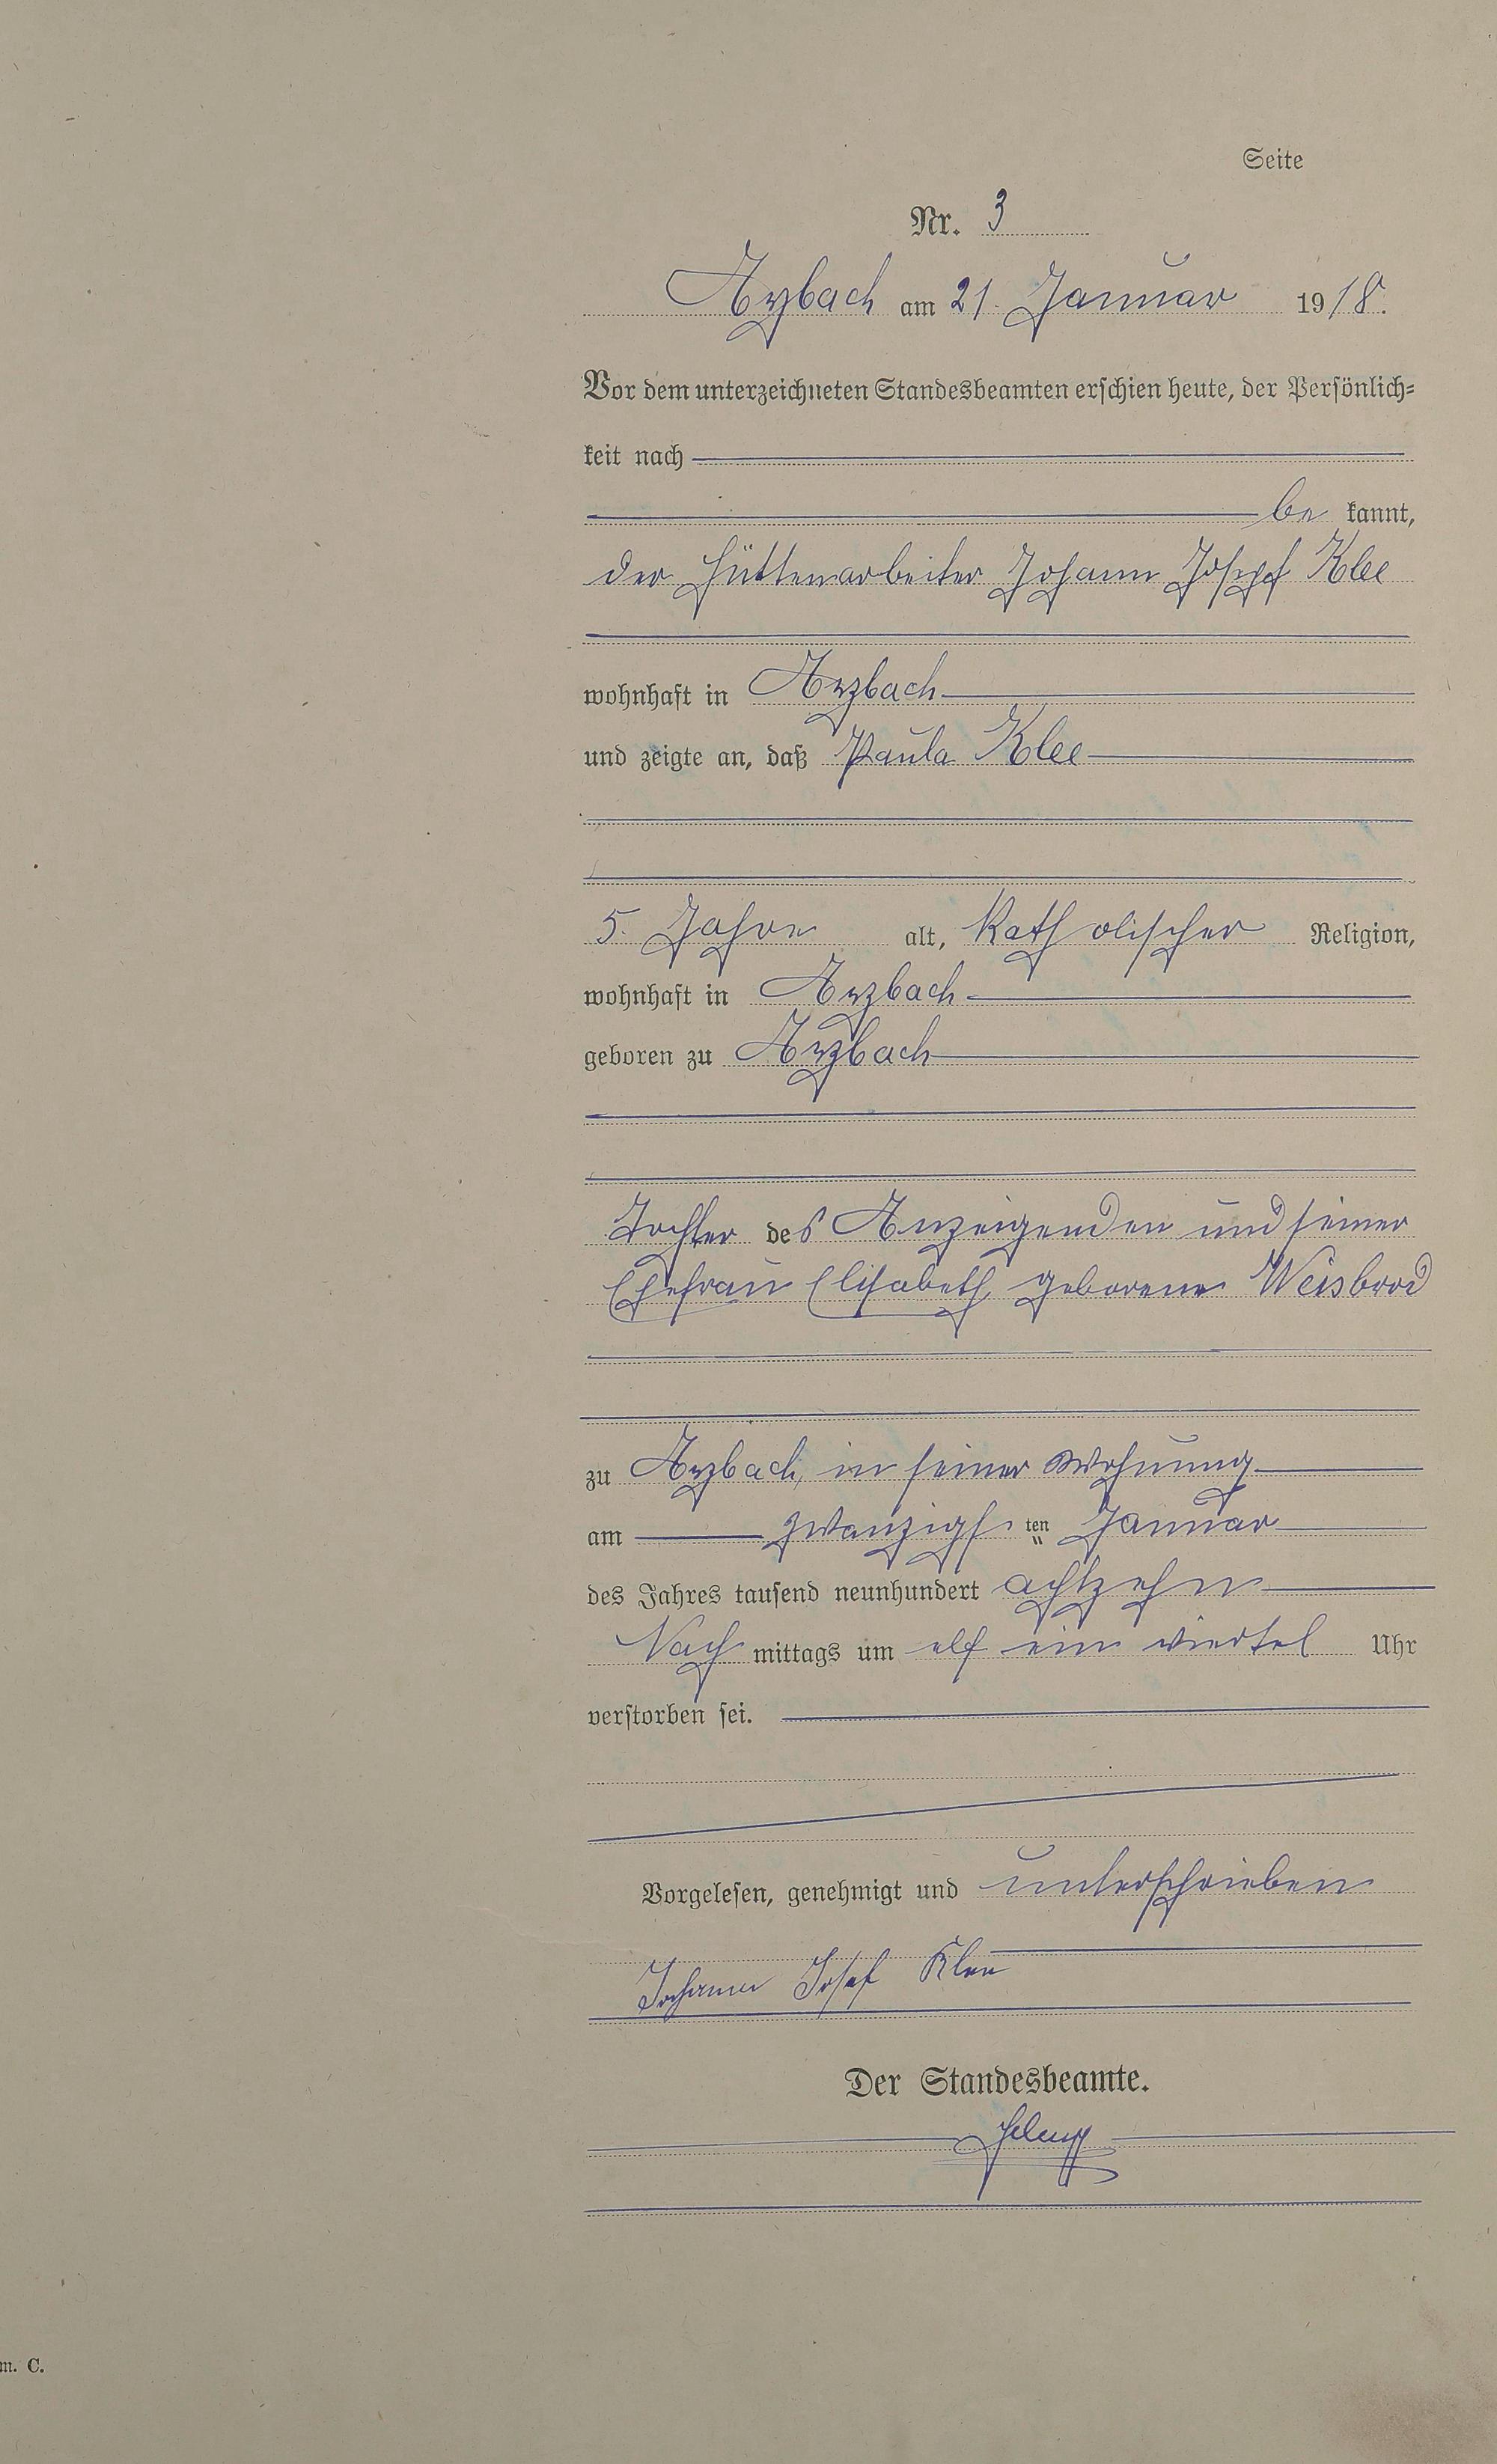 Seite
Nr. 3
Arzbach am 21. Januar 1918.
Vor dem unterzeichneten Standesbeamten erschien heute, der Persönlich-
keit nach
be kannt,
der Hüttenarbeiter Johann Josepf Klee
wohnhaft in Arzbach
und zeigte an, daß Paula Klee
5. Jahre alt, Katholischer Religion,
wohnhaft in Arzbach
geboren zu Arzbach
Tochter des Anzeigenden und seiner
Ehefrau Elisabeth geborene Weisbrod
zu Arzbach, in seiner Wohnung
am zwanzigsten Januar
des Jahres tausend neunhundert achtzehn
Nach mittags um elf ein viertel Uhr
verstorben sei.
Vorgelesen, genehmigt und unterschrieben
Johann Josef Klee
Der Standesbeamte.
m. C.